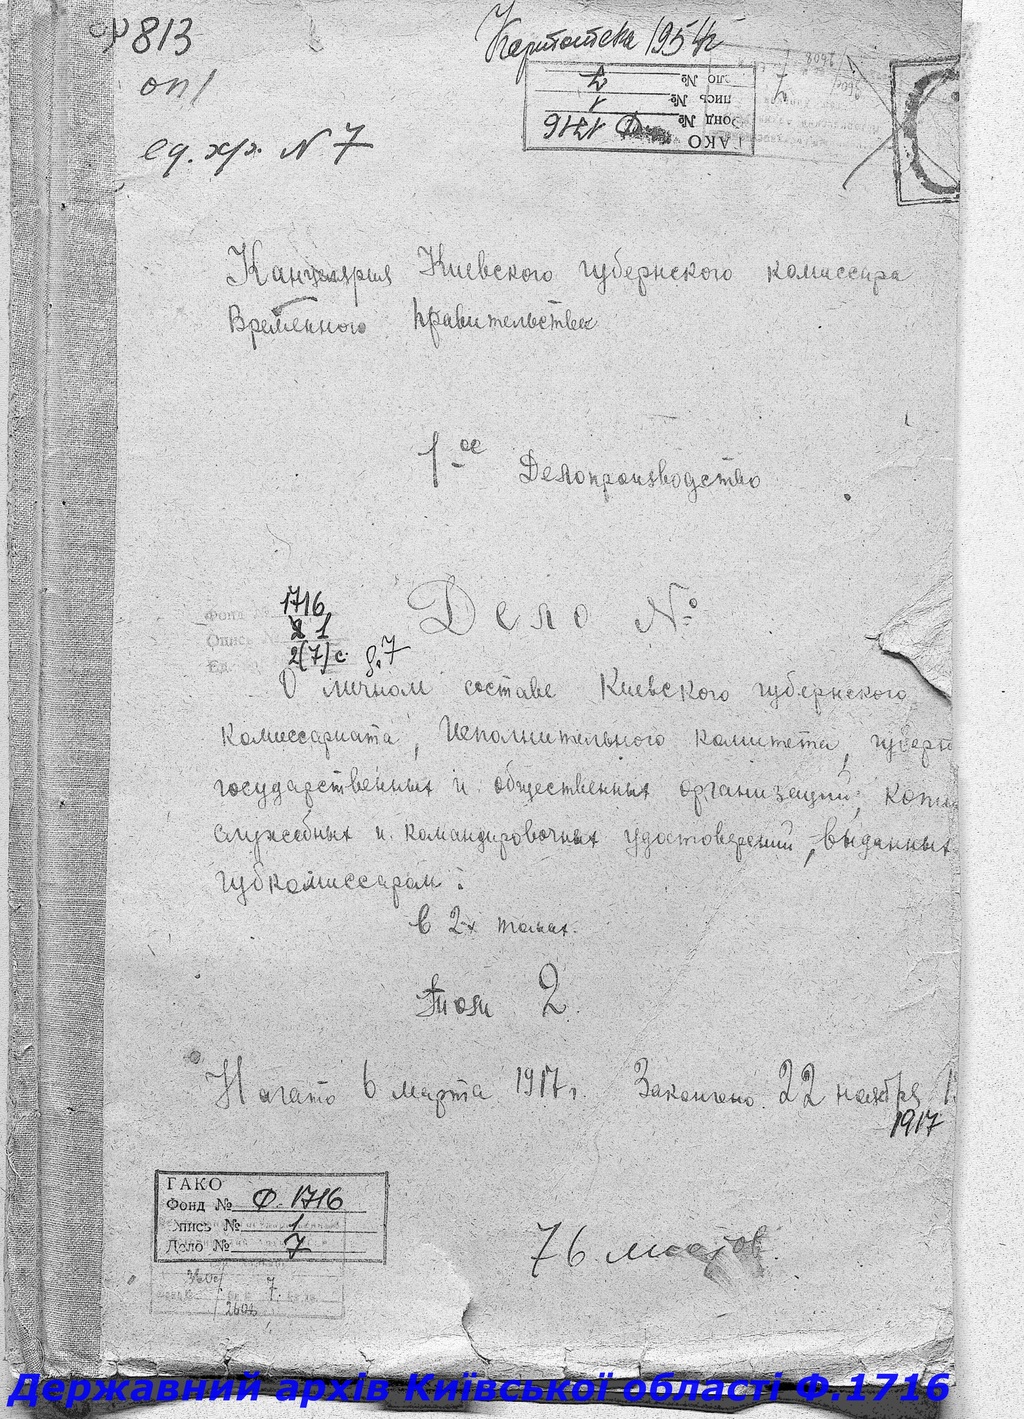 ср 813
оп 1
ед. хр. N 7
Картотека 1954г
ГАКО
Фонд № Ф 1716
пись № 1
ло № 7
Канцелярия Киевского губернского комиссара
Временного правительства
1ое Делопроизводство
Дело №
Фонд 1716
Опись № 1
Ед. 2(7) с. д.7
О личном составе Киевского губернского
комиссариата, Исполнительного комитета, губерн
государственных и общественных организаций, копи
служебных и командировочных удостоверений, выданных
губкомиссаром.
в 2-х томах.
том 2.
Начато 6 марта 1917 г. Закончено 22 ноября 1
1917
ГАКО
Фонд № Ф. 1716
Опись № 1
Дело № 7
7.
2606
76 листов.
Державний архів Київської області Ф.1716